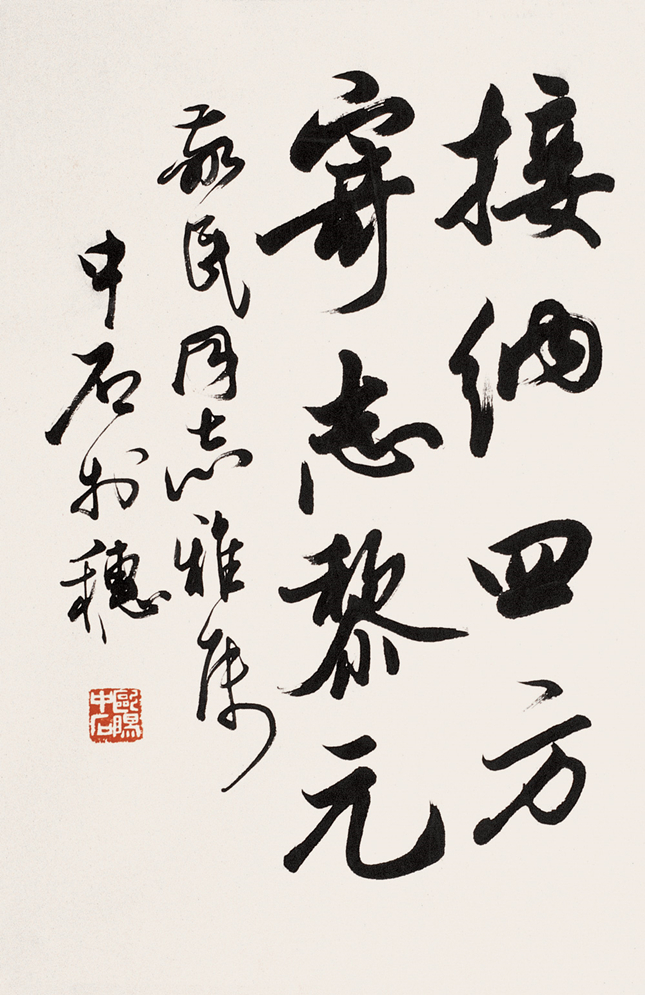 接納四方
寄志黎元
敬民同志雅属
中石於穗
歐陽中石